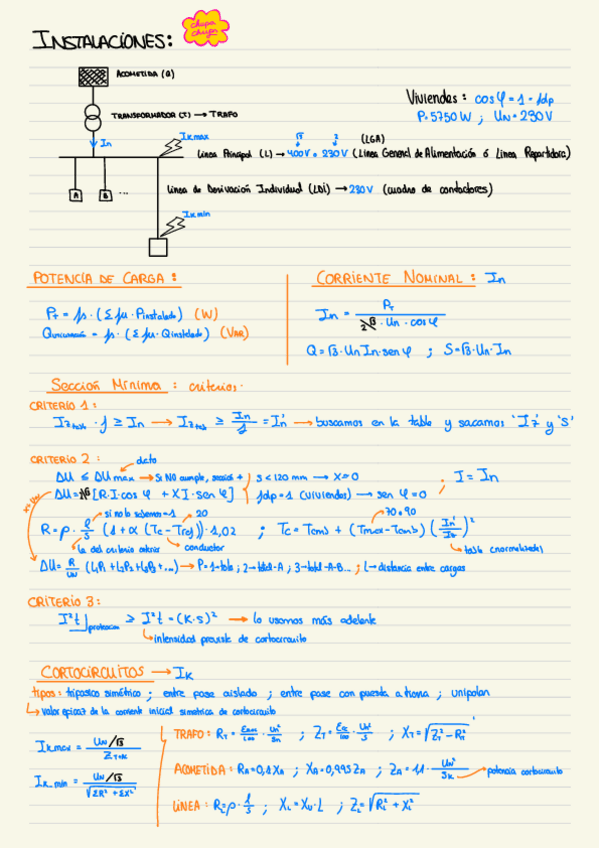 INSTALACIONES:
chupa chups
ACOMETIDA (Q)
TRANSFORMADOR (T) → TRAFO
Viviendas: cos φ = 1 = fdp
P = 5750 W ; UN = 230 V
In
Ikmax
√3 2 (LGA)
Línea Principal (L) → 400V o 230V (Línea General de Alimentación ó Línea Repartidora)
A B ...
Línea de Derivación Individual (LDI) → 230V (cuadro de contadores)
Ik min
POTENCIA DE CARGA:
PT = fs · (Σ fu · Pinstalada) (W)
· (Σ fu · Qinstalada) (VAr)
CORRIENTE NOMINAL: In
In = PT / 2√3 · Un · cos φ
Q = √3 · Un In · sen φ ; S = √3 · Un · In
Sección Mínima: criterios.
CRITERIO 1:
Iz tabla · f ≥ In → Iz tab ≥ In / f = In' → buscamos en la tabla y sacamos 'Iz' y 'S'
CRITERIO 2: dato
ΔU ≤ ΔU max → si NO cumple, sección + S < 120 mm → X = 0 ; I = In
[R · I · cos φ + X I · sen φ] fdp = 1 (viviendas) → sen φ = 0
si no lo sabemos = 1 20 70 o 90
R = ρ · l / S (1 + α (Tc - Tref)) · 1,02 ; Tc = Tamb + (Tmax - Tamb) (In' / Iz)²
la del criterio anterior conductor tabla (normalizada)
ΔU = R / UN (L1P1 + L2P2 + L3P3 + ...) → P = 1 - todo ; 2 - total - A ; 3 - total - A - B... ; L → distancia entre cargas
CRITERIO 3:
I²t] protección ≥ I²t = (K · S)² → lo usamos más adelante
intensidad prevista de cortocircuito
CORTOCIRCUITOS → Ik
tipos: trifásico simétrico ; entre fase aislado ; entre fase con puesta a tierra ; unipolar
valor eficaz de la corriente inicial simétrica de cortocircuito
Ikmax = UN/√3 / ZT+K
Ik min = UN/√3 / √ΣR² + ΣX²
TRAFO: RT = / 100 · Un² / Sn ; ZT = / 100 · Un² / S ; XT = √ZT² - RT²
ACOMETIDA: RA = 0,1 XA ; XA = 0,995 ZA ; ZA = 1,1 · Un² / Sk → potencia cortocircuito
LÍNEA: RL = ρ · l / S ; XL = Xu · L ; ZL = √RL² + XL²